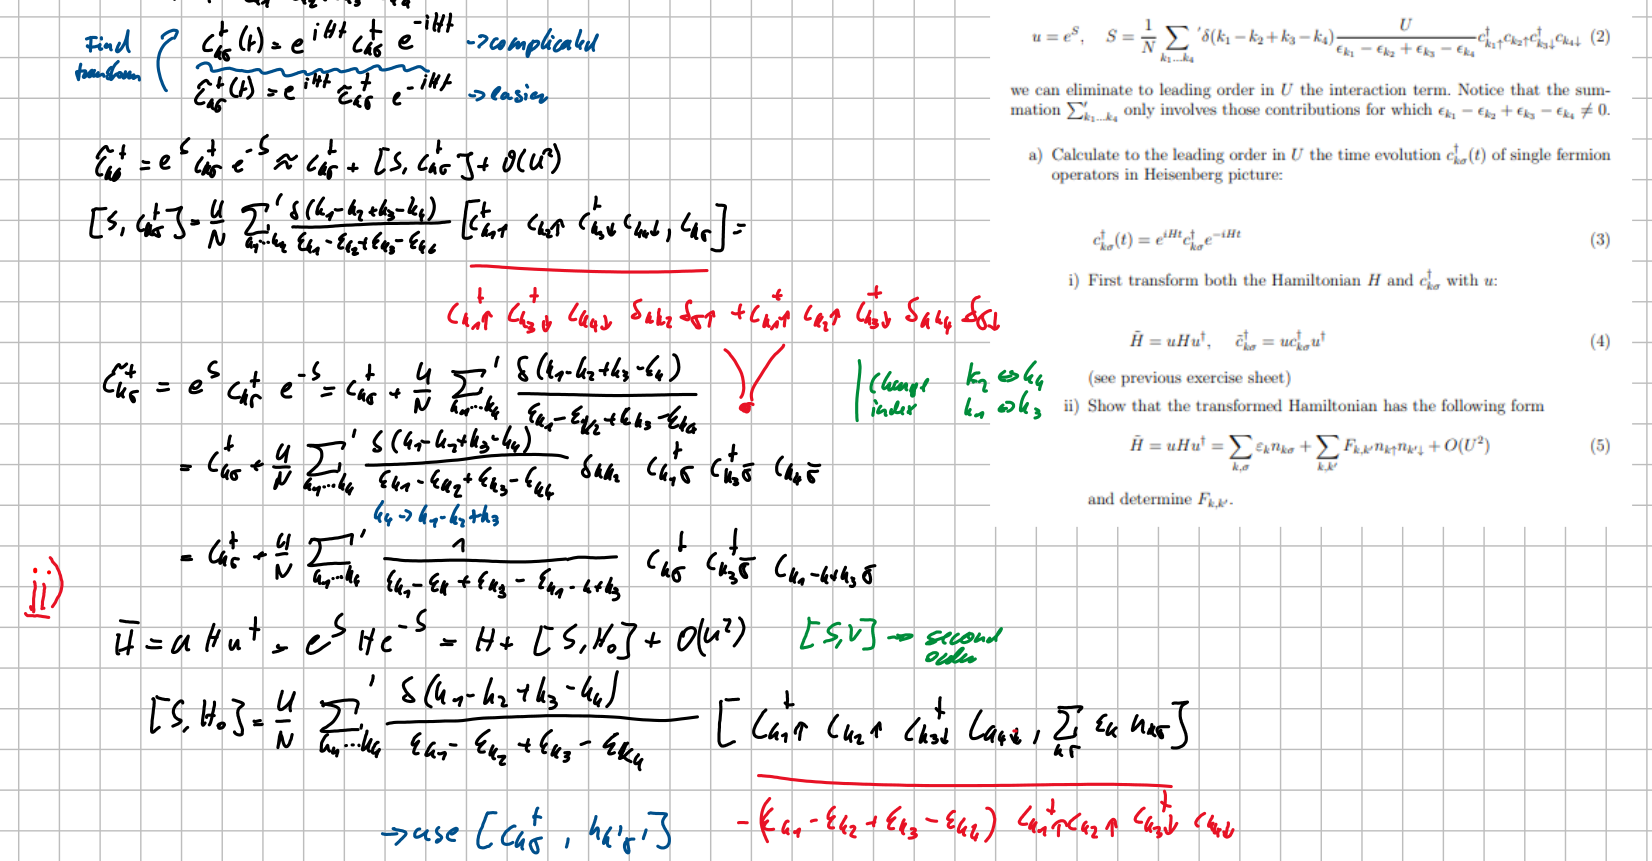 Find transform
c†_{kσ}(t) = e^{iHt} c†_{kσ} e^{-iHt} → complicated
c̃†_{kσ}(t) = e^{iHt} c̃†_{kσ} e^{-iHt} → easier
c̃†_{kσ} = e^{S} c†_{kσ} e^{-S} ≈ c†_{kσ} + [S, c†_{kσ}] + O(U²)
[S, c†_{kσ}] = U/N Σ'_{k₁...k₄} δ(k₁-k₂+k₃-k₄)/(ε_{k₁}-ε_{k₂}+ε_{k₃}-ε_{k₄}) [c†_{k₁↑} c_{k₂↑} c†_{k₃↓} c_{k₄↓}, c_{kσ}] =
c†_{k₁↑} c†_{k₃↓} c_{k₄↓} δ_{kk₂} δ_{σ↑} + c†_{k₁↑} c_{k₂↑} c†_{k₃↓} δ_{kk₄} δ_{σ↓}
c̃†_{kσ} = e^{S} c†_{kσ} e^{-S} = c†_{kσ} + U/N Σ'_{k₁...k₄} δ(k₁-k₂+k₃-k₄)/(ε_{k₁}-ε_{k₂}+ε_{k₃}-ε_{k₄})
Change index k₂ ⇔ k₄
k₁ ⇔ k₃
= c†_{kσ} + U/N Σ'_{k₁...k₄} δ(k₁-k₂+k₃-k₄)/(ε_{k₁}-ε_{k₂}+ε_{k₃}-ε_{k₄}) δ_{kk₂} c†_{k₁σ} c†_{k₃σ̄} c_{k₄σ̄}
k₄ → k₁-k₂+k₃
= c†_{kσ} + U/N Σ'_{k₁...k₄} 1/(ε_{k₁}-ε_{k}+ε_{k₃}-ε_{k₁-k+k₃}) c†_{kσ} c†_{k₃σ̄} c_{k₁-k+k₃σ̄}
ii)
H̄ = u H u† = e^{S} H e^{-S} = H + [S, H₀] + O(U²) [S,V] → second order
[S, H₀] = U/N Σ'_{k₁...k₄} δ(k₁-k₂+k₃-k₄)/(ε_{k₁}-ε_{k₂}+ε_{k₃}-ε_{k₄}) [c†_{k₁↑} c_{k₂↑} c†_{k₃↓} c_{k₄↓}, Σ_{kσ} ε_k n_{kσ}]
→ use [c†_{kσ}, n_{k'σ'}]
-(ε_{k₁}-ε_{k₂}+ε_{k₃}-ε_{k₄}) c†_{k₁↑} c_{k₂↑} c†_{k₃↓} c_{k₄↓}
u = e^{S}, S = 1/N Σ'_{k₁...k₄} δ(k₁-k₂+k₃-k₄) U/(ϵ_{k₁}-ϵ_{k₂}+ϵ_{k₃}-ϵ_{k₄}) c†_{k₁↑}c_{k₂↑}c†_{k₃↓}c_{k₄↓} (2)
we can eliminate to leading order in U the interaction term. Notice that the sum-
mation Σ'_{k₁...k₄} only involves those contributions for which ϵ_{k₁} - ϵ_{k₂} + ϵ_{k₃} - ϵ_{k₄} ≠ 0.
a) Calculate to the leading order in U the time evolution c†_{kσ}(t) of single fermion
operators in Heisenberg picture:
c†_{kσ}(t) = e^{iHt}c†_{kσ}e^{-iHt} (3)
i) First transform both the Hamiltonian H and c†_{kσ} with u:
H̄ = uHu†, c̄†_{kσ} = uc†_{kσ}u† (4)
(see previous exercise sheet)
ii) Show that the transformed Hamiltonian has the following form
H̄ = uHu† = Σ_{k,σ} ε_k n_{kσ} + Σ_{k,k'} F_{k,k'} n_{k↑}n_{k'↓} + O(U²) (5)
and determine F_{k,k'}.